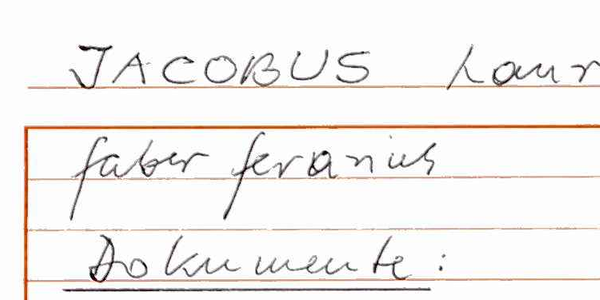 JACOBUS Laur
faber ferarius
Dokumente: